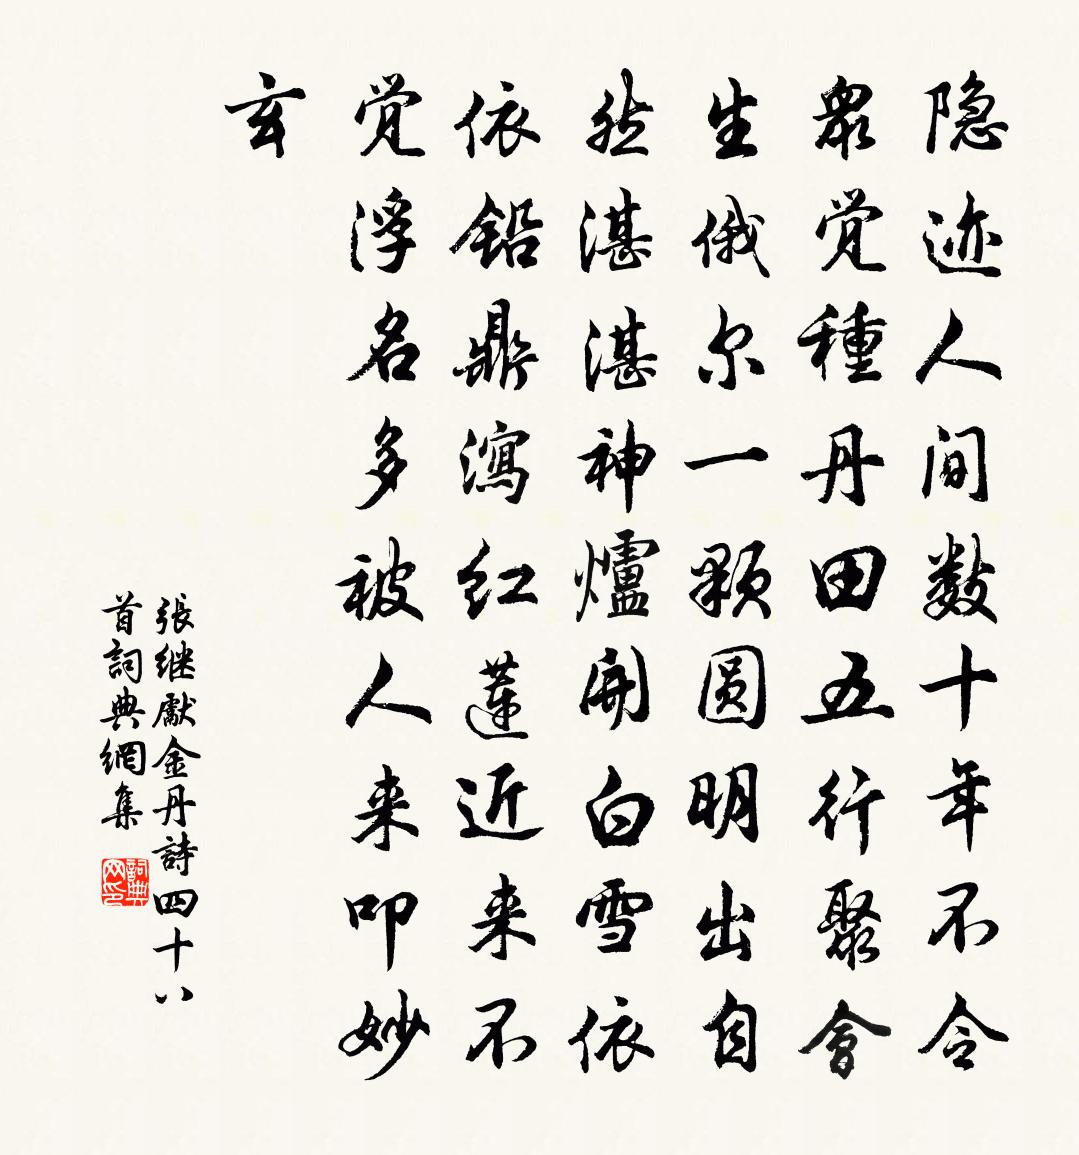 隐迹人间数十年不令
眾觉種丹田五行聚會
生俄尔一颗圆明出自
然湛湛神爐開白雪依
依铅鼎瀉红蓮近来不
觉浮名多被人来叩妙
玄
張继獻金丹詩四十八
首詞典網集
詞典
网印